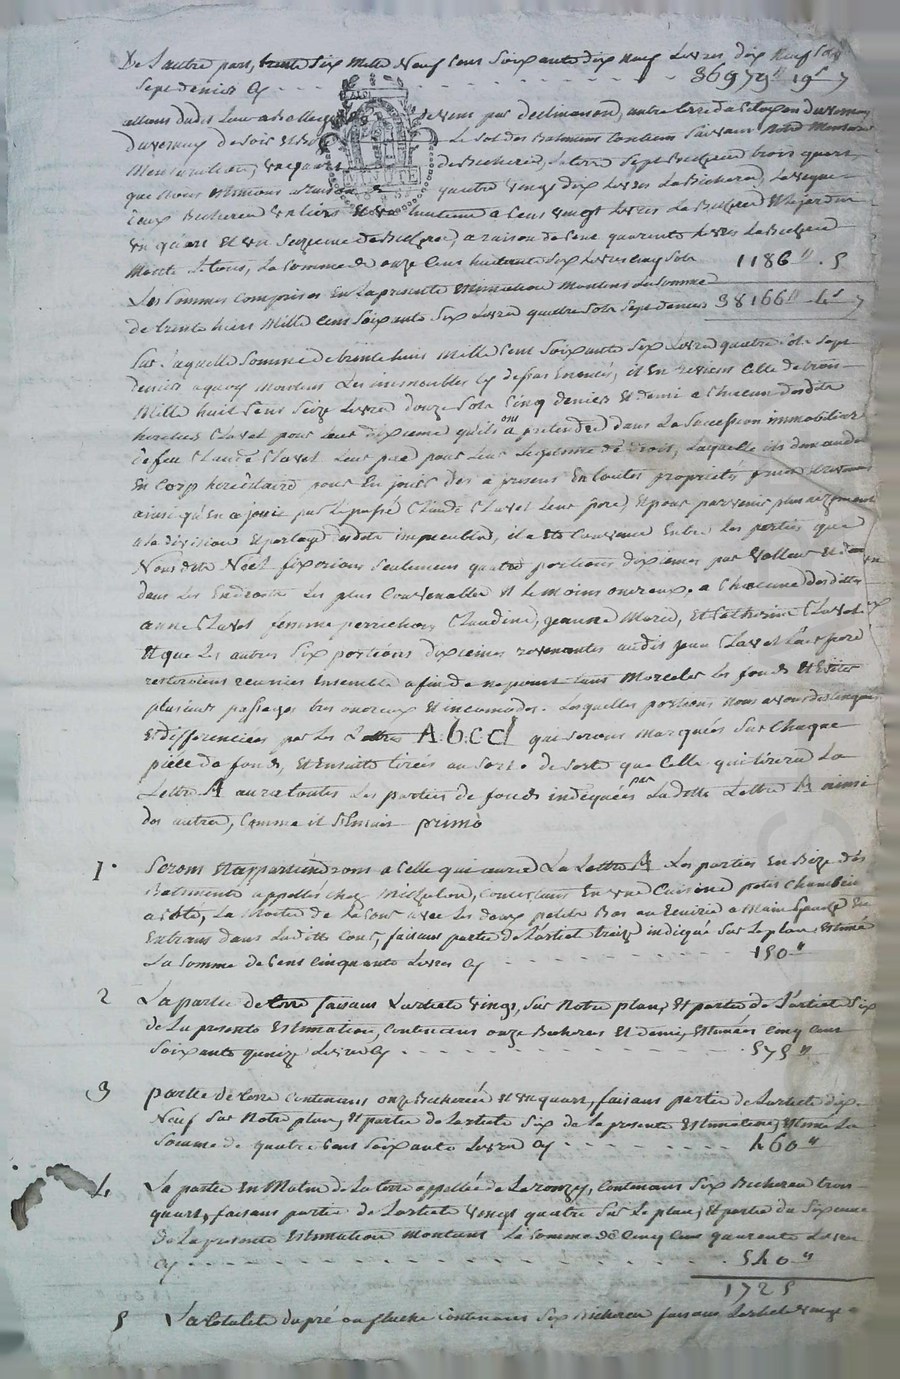 De L'autre part, trente Six Mille Neuf Cens Soixante dix neuf Livres dix neuf Sols
Sept deniers Cy - - - 36979" 19s 7
Le Sol des Batiments
de Bicherée, Sept Bicherées trois quart
que Nous Estimons a raison quatre vingt dix Livres La Bicherée,
a Cent vingt Livres La Bicherée Et le jardin
un quart Et un Seizieme de Bicherée, a raison de Cent quarente Livres La Bicherée
Monte Le tout, La Somme de onze Cens huitante Six Livres Cinq Sols 1186" . 5
Les Sommes Comprises En La presente Estimation Montent La Somme
de trente huit Mille Cent Soixante Six Livres quattre Sols Sept deniers 38166" 4s 7
Sur Laquelle Somme de trente huit Mille Cent Soixante Six Livres quatre Sols Sept
deniers a quoy Montent Les immeubles Cy dessus Enoncés, il En revient Celle de trois
Mille huit Cens Seize Livres douze Sols Cinq deniers Et demi a Chacun desdits
heritiers Clavel pour leur dixieme qu'ils ont a pretendre dans La Succession immobiliaire
de feu Claude Clavel Leur pere pour Leur Legitime de droit, Laquelle ils demandent
En Corp hereditaire pour En jouir des a present En toutes proprietés
ainsi qu'En a jouie par Le passé Claude Clavel Leur pere, Et pour parvenir plus aizement
a La division Et partage desdits immeubles, il a Eté Convenu Entre Les parties que
Nous dits Noël fixerions Seulement quatre portions dixiemes par valleur Et
dans Les Endroits Les plus Convenables Et Le moins onereux, a Chacune desdittes
anne Clavel femme perrichon, Claudine, jeanne Marie, Et Catherine Clavel
Et que Les autres Six portions dixiemes revenantes audit jean Clavel Leur frere
resteroient reunies Ensemble afin de ne point tant Morceler Les fonds Et Eviter
plusieurs passages tres onereux Et incomodes. Lesquelles portions Nous avons distingués
Et differenciées par Les Lettres A b c d qui Seront Marqués Sur Chaque
piéce de fonds, Et Ensuitte tirées au Sort. de Sorte que Celle qui tirera La
Lettre A aura toutes Les parties de fonds indiquées par Laditte Lettre A ainsi
des autres, Comme il S'Ensuit primò
1. Seront Et appartiendront a Celle qui aura La Lettre A Les parties En Bize des
Batiments appellés chez Michelon, Consistant En une Cuisine petit Chambre
a Coté, La Moitié de La Cour avec Les deux petits Bas au Levirié a Main Gauche En
Entrant dans Laditte Cour, faisant partie de L'article treize indiqué Sur Le plan, Estimé
La Somme de Cent Cinquante Livres Cy - - - 150"
2 La partie de terre faisant L'article vingt, Sur Notre plan, Et partie de L'article Six
de La presente Estimation, Contenant onze Bicherées Et demi, Estimée Cinq Cent
Soixante quinze Livres Cy - - - 575"
3 partie de terre Contenant onze Bicherées Et un quart, faisant partie de L'article dix
Neuf Sur Notre plan, Et partie de L'article Six de La presente Estimation, Estimé La
Somme de quatre Cens Soixante Livres Cy - - - 460"
4 La partie En Matin de La terre appellée de La ronzy, Contenant Six Bicherées trois
quart, faisant partie de L'article vingt quatre Sur Le plan, Et partie du Sixieme
de La presente Estimation Montant La Somme de Cinq Cens quarente Livres
Cy - - - 540"
1725
5 La totalité du pré ou fluche Contenant Six Bicherées faisant L'article